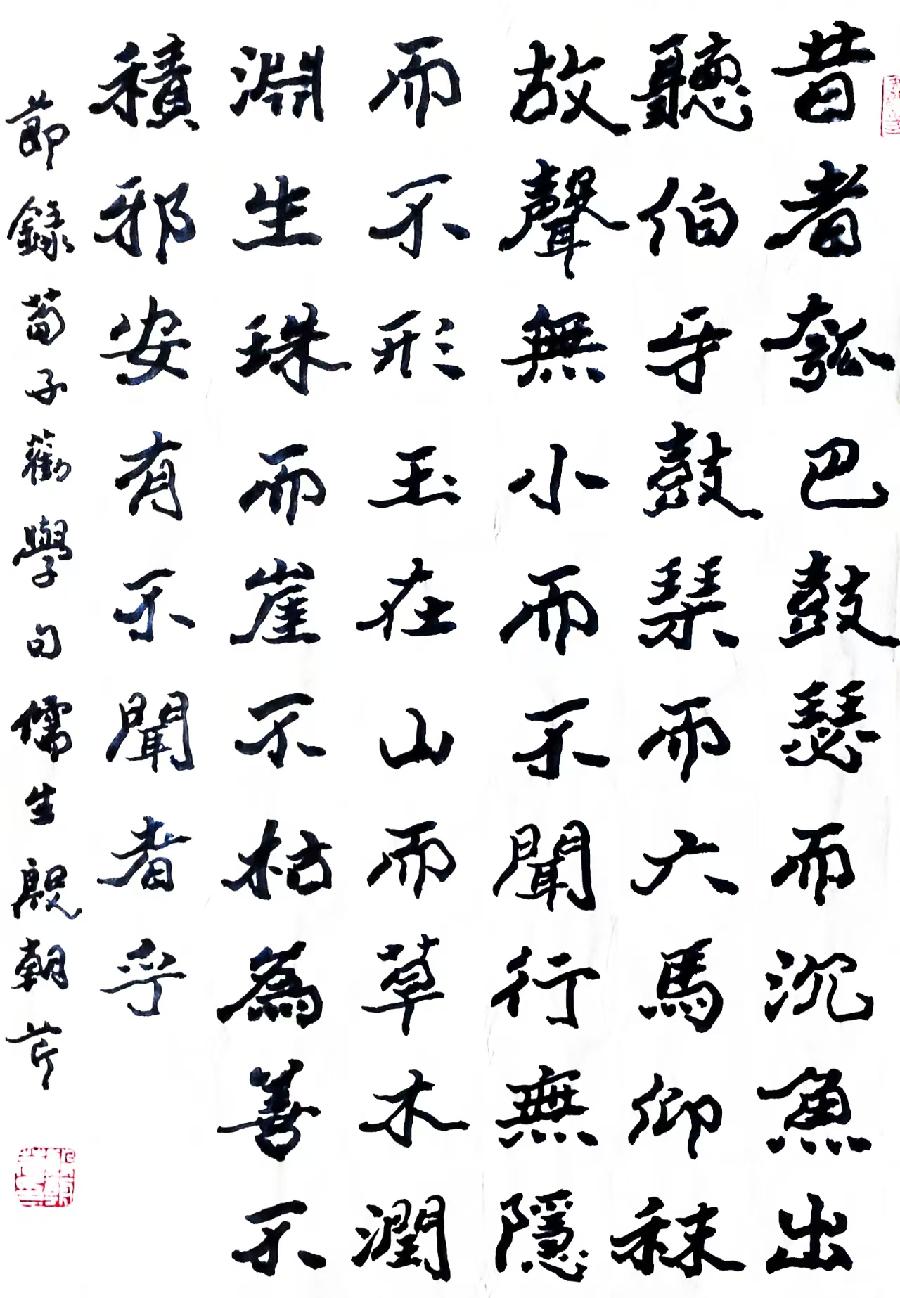 昔者瓠巴鼓瑟而沉魚出
聽伯牙鼓琴而六馬仰秣
故聲無小而不聞行無隱
而不形玉在山而草木潤
淵生珠而崖不枯為善不
積邪安有不聞者乎
節錄荀子勸學句儒生殷朝芹